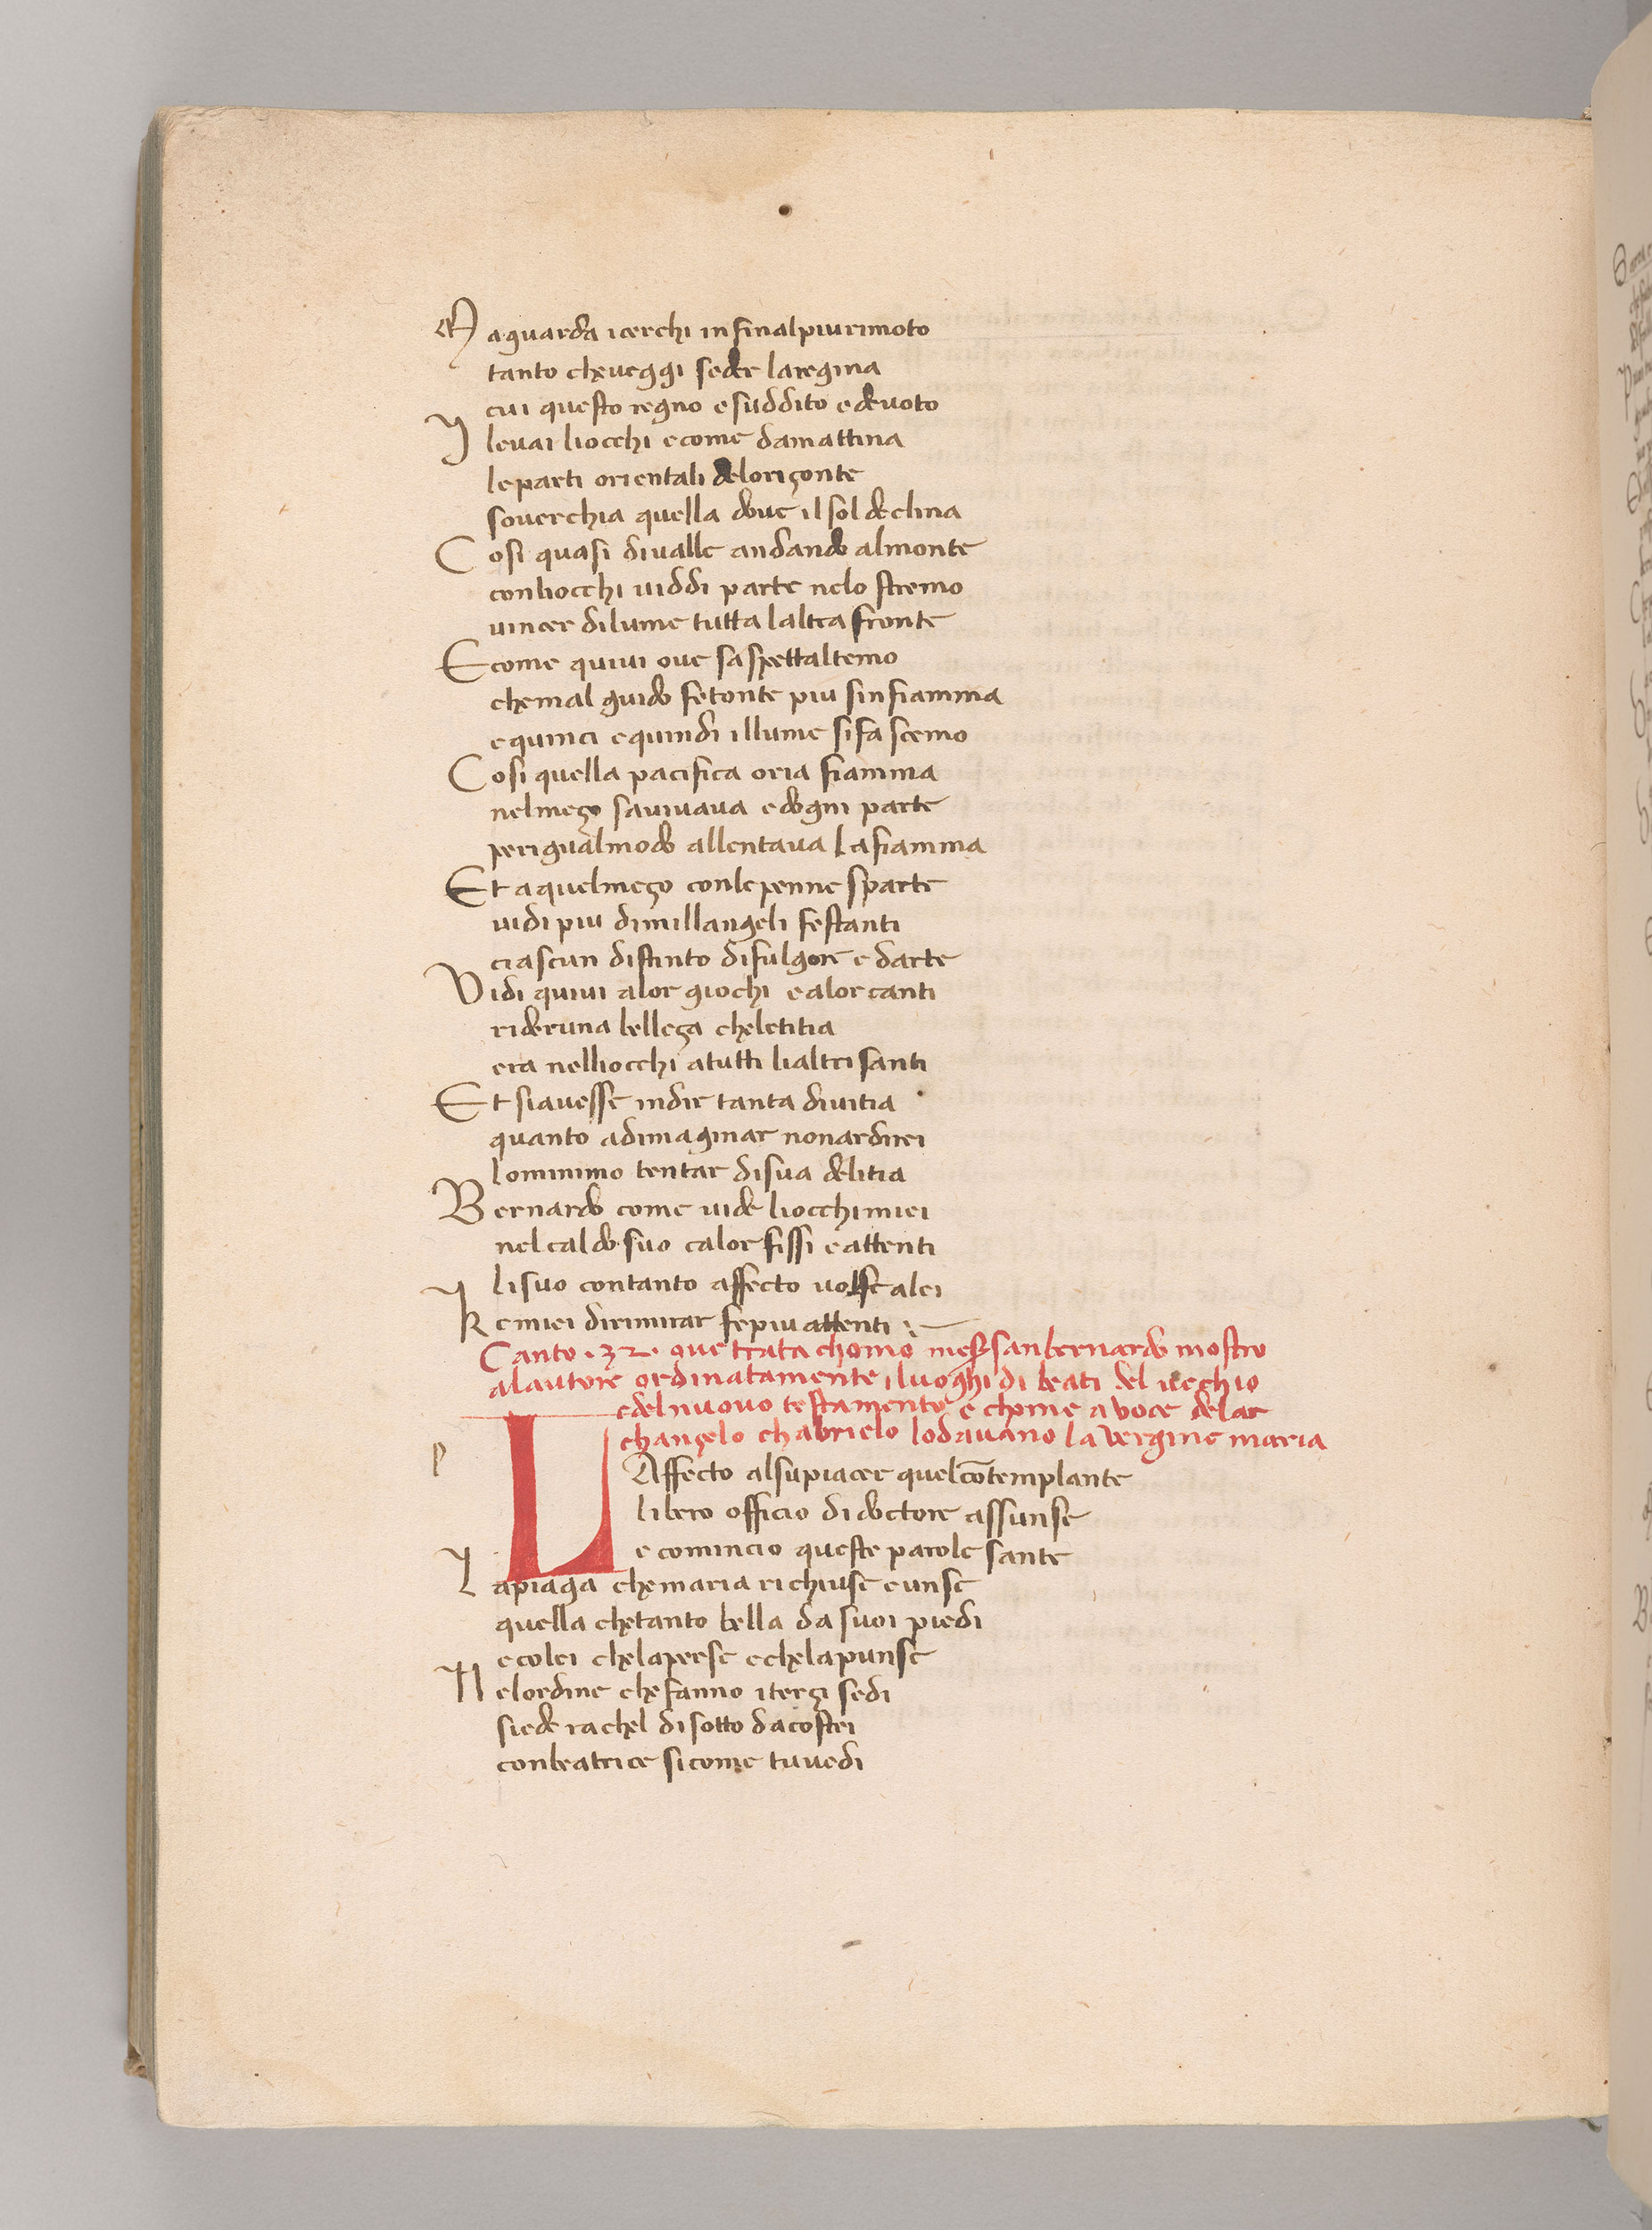 Ma guarda i cerchi in fin al piu rimoto
tanto che veggi seder la regina
cui questo regno e suddito e devoto
I levai li occhi e come da mattina
le parti orientali del oriçonte
soverchia quella dove il sol declina
Cosi quasi di valle andando al monte
con li occhi viddi parte nelo stremo
vincer di lume tutta l altra fronte
E come quivi ove s aspetta l temo
che mal guido fetonte piu s infiamma
e quinci e quindi il lume si fa scemo
Cosi quella pacifica oria fiamma
nel meço s avivava e d ogni parte
per igual modo allentava la fiamma
Et a quel meço con le penne sparte
vidi piu di mill angeli festanti
ciascun distinto di fulgore e d arte
Vidi quivi a lor giochi e a lor canti
rider una belleça che letitia
era nelli occhi a tutti li altri santi
Et s i avesse in dir tanta divitia
quanto ad imaginar non ardirei
lo minimo tentar di sua delitia
Bernardo come vide li occhi miei
nel caldo suo calor fissi e attenti
li suo con tanto affecto volse a lei
Ke miei di rimirar fe piu attenti
Canto .32. ove trata chomo meser san bernardo mostro
al autore ordinatamente i luoghi di beati del vechio
e del nuovo testamento e chome a voce del ar
changelo chabrielo lodavano la vergine maria
p
L Affecto al su piacer quel cōtemplante
libero officio di doctore assunse
e comincio queste parole sante
La piaga che maria richiuse e unse
quella che tanto bella da suoi piedi
e colei che l aperse e che la punse
Nel ordine che fanno i terçi sedi
siede rachel di sotto da costei
con beatrice si come tu vedi